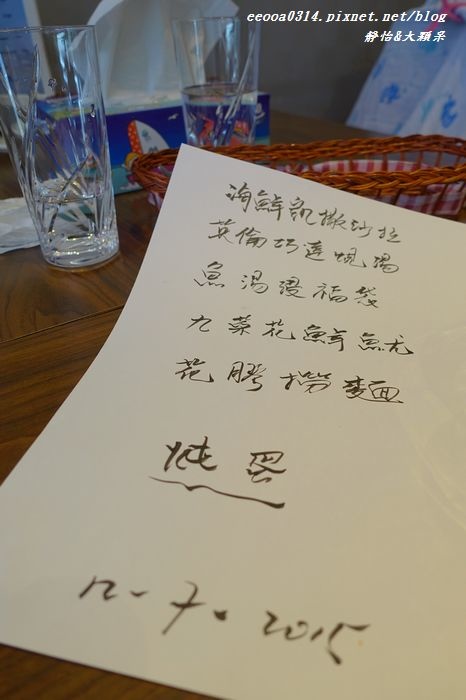 eeooa0314.pixnet.net/blog
靜怡&大顆呆
海鮮凱撒沙拉
英倫巧達蜆湯
魚湯浸福袋
九菜花鮮魷
花膠撈麵
炖蛋
12-7.2015